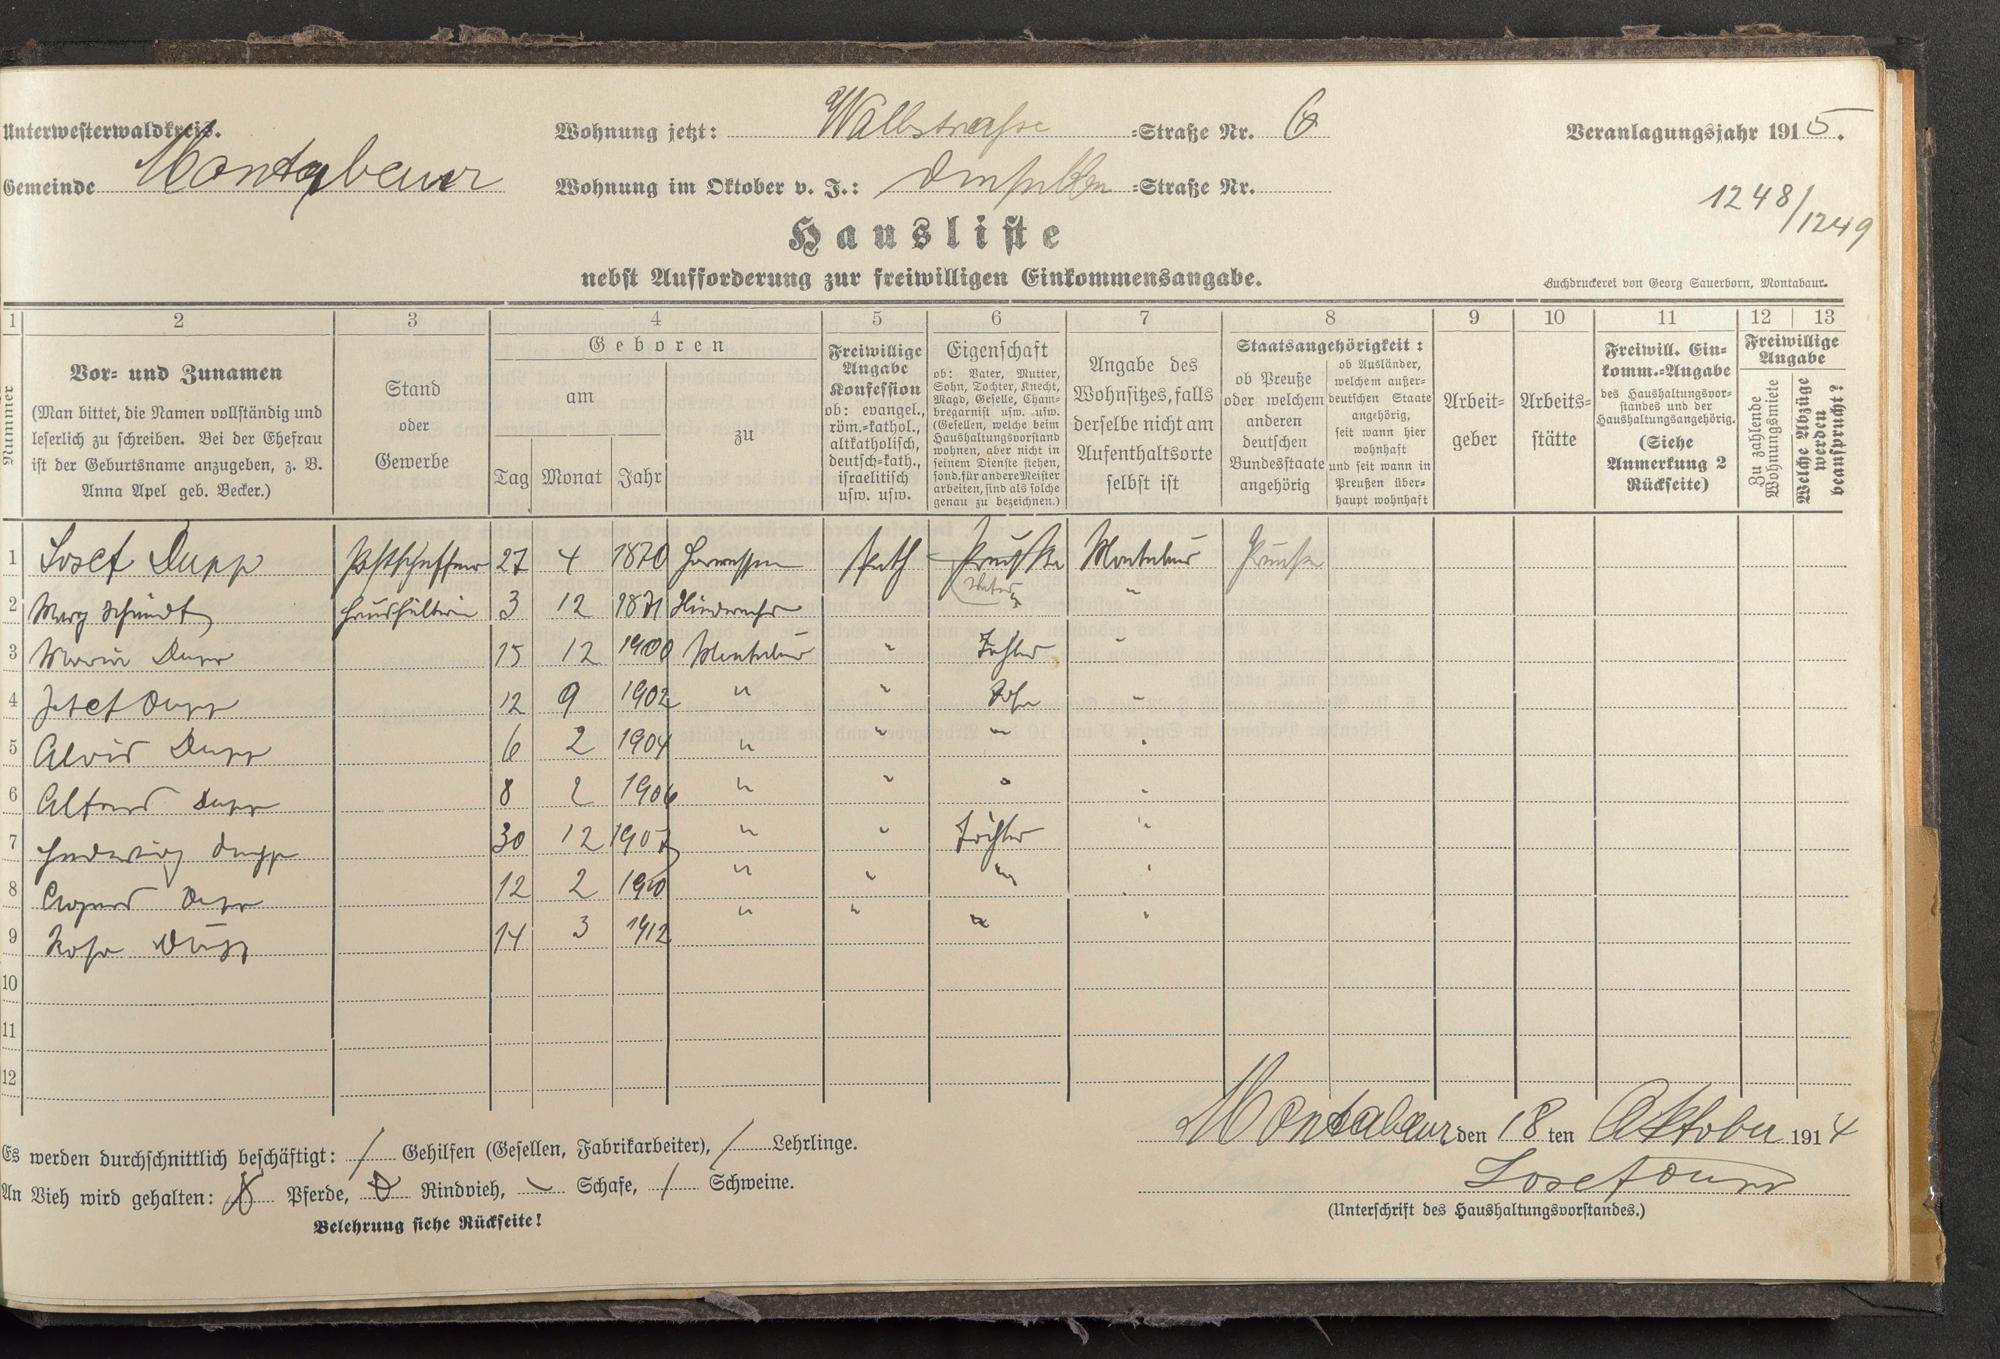 Unterwesterwaldkreis.
Gemeinde Montabaur
Wohnung jetzt: Wallstraße =Straße Nr. 6
Wohnung im Oktober v. J.: =Straße Nr.
Veranlagungsjahr 1915.
1248/1249
Hausliste
nebst Aufforderung zur freiwilligen Einkommensangabe.
Buchdruckerei von Georg Sauerborn, Montabaur.
1 2 3 4 5 6 7 8 9 10 11 12 13
Nummer
Vor- und Zunamen
(Man bittet, die Namen vollständig und
leserlich zu schreiben. Bei der Ehefrau
ist der Geburtsname anzugeben, z. B.
Anna Apel geb. Becker.)
Stand
oder
Gewerbe
Geboren
am
Tag Monat Jahr
zu
Freiwillige
Angabe
Konfession
ob: evangel.,
röm.=kathol.,
altkatholisch,
deutsch=kath.,
israelitisch
usw. usw.
Eigenschaft
ob: Vater, Mutter,
Sohn, Tochter, Knecht,
Magd, Geselle, Cham-
bregarnist usw. usw.
(Gesellen, welche beim
Haushaltungsvorstand
wohnen, aber nicht in
seinem Dienste stehen,
sond. für andere Meister
arbeiten, sind als solche
genau zu bezeichnen.)
Angabe des
Wohnsitzes, falls
derselbe nicht am
Aufenthaltsorte
selbst ist
Staatsangehörigkeit:
ob Preuße
oder welchem
anderen
deutschen
Bundesstaate
angehörig
ob Ausländer,
welchem außer-
deutschen Staate
angehörig,
seit wann hier
wohnhaft
und seit wann in
Preußen über-
haupt wohnhaft
Arbeit-
geber
Arbeits-
stätte
Freiwill. Ein-
komm.=Angabe
des Haushaltungsvor-
standes und der
Haushaltungsangehörig.
(Siehe
Anmerkung 2
Rückseite)
Freiwillige
Angabe
Zu zahlende
Wohnungsmiete
Welche Abzüge
werden
beansprucht?
1 Josef Dupp Postschaffner 27 4 1870 kath Preuße Montabaur Preuße
Vater
2 Marg Schmidt Haushälterin 3 12 1871 "
3 Maria Dupp 15 12 1900 Montabaur " Tochter "
4 Josef Dupp 12 9 1902 " " Sohn "
5 Alois Dupp 6 2 1904 " " " "
6 Alfons Dupp 8 2 1906 " " " "
7 Hedwig Dupp 30 12 1907 " " Tochter "
8 Dupp 12 2 1910 " " " "
9 Rosa Dupp 14 3 1912 " " " "
10
11
12
Es werden durchschnittlich beschäftigt: / Gehilfen (Gesellen, Fabrikarbeiter), / Lehrlinge.
An Vieh wird gehalten: Pferde, Rindvieh, Schafe, / Schweine.
Belehrung siehe Rückseite!
Montabaur den 18 ten Oktober 1914
Josef Dupp
(Unterschrift des Haushaltungsvorstandes.)